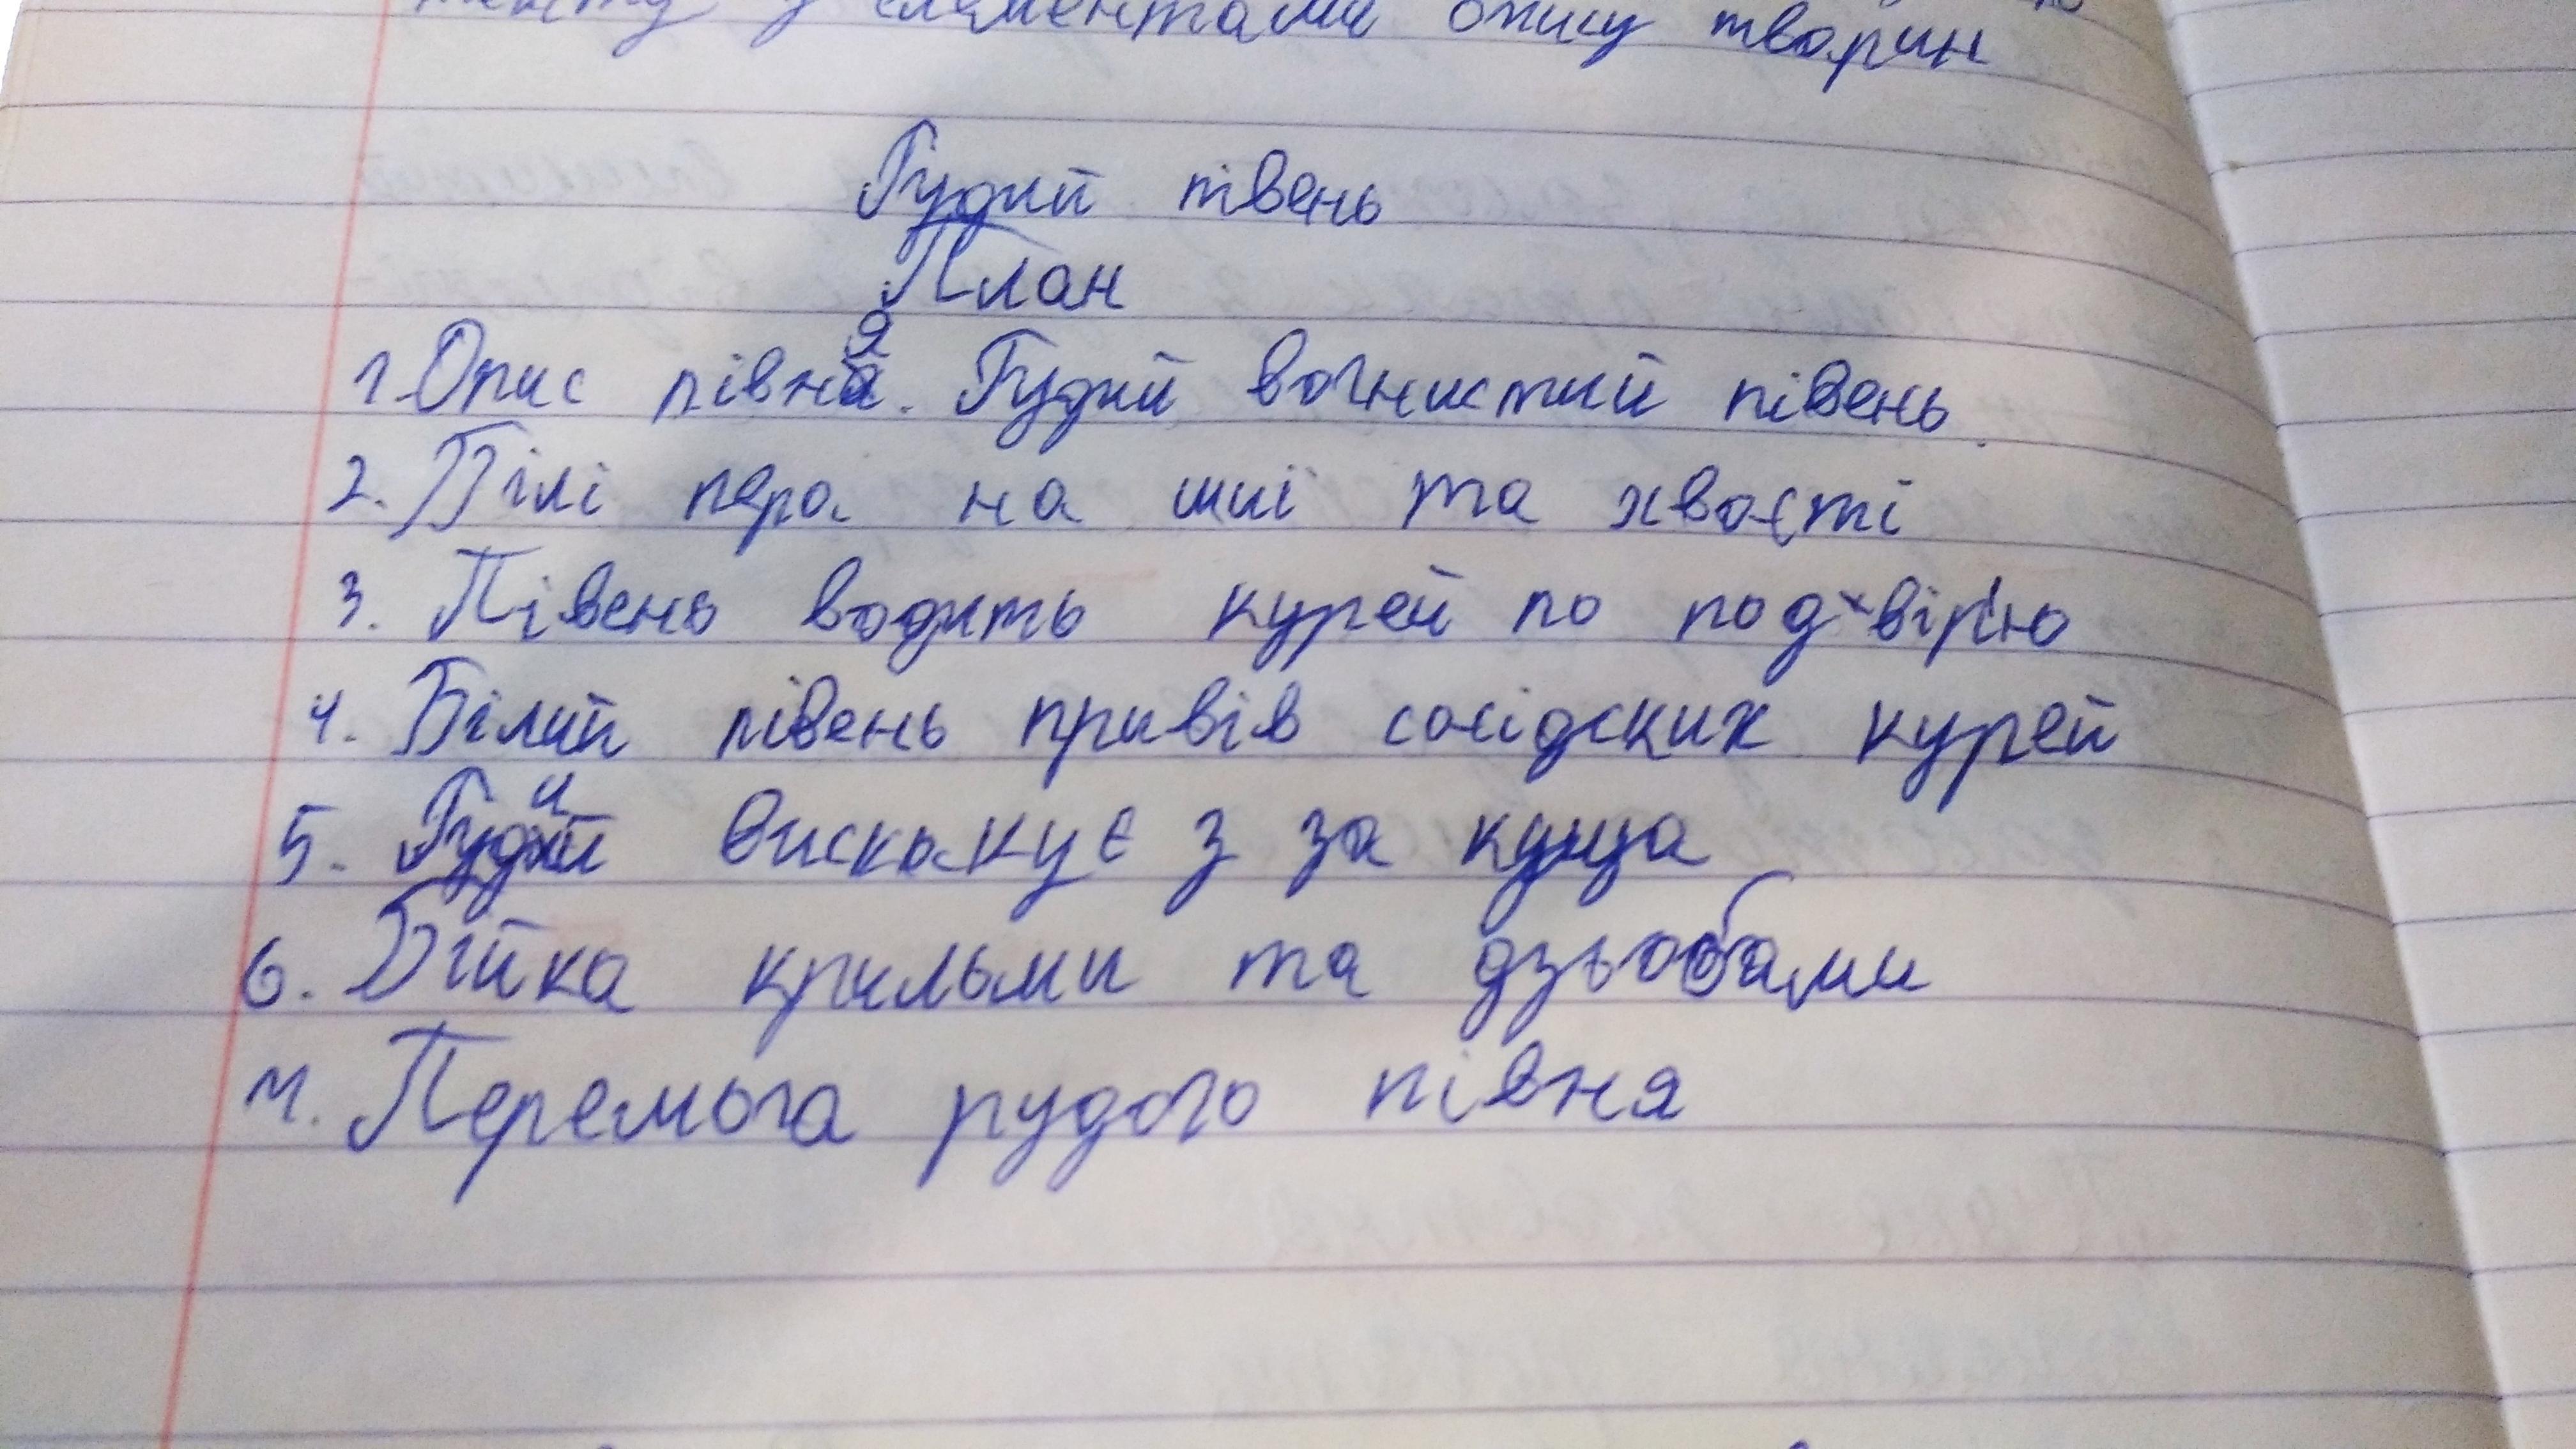 тексту з елементами опису тварин
Рудий півень
План
1. Опис півня. Рудий вогнистий півень.
2. Білі пера на шиї та хвості
3. Півень водить курей по подвір'ю
4. Білий півень привів сосідских курей
5. Рудий вискакує з за куща
6. Бійка крильми та дзьобами
7. Перемога рудого півня